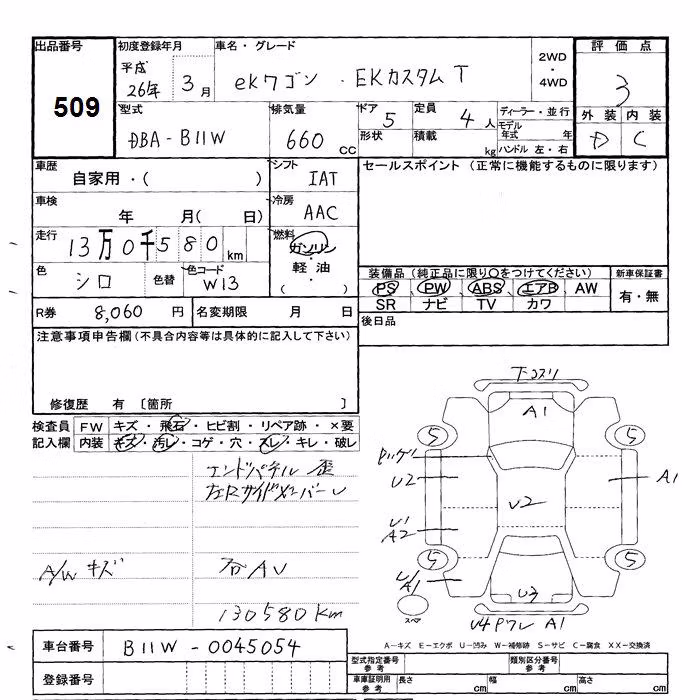 出品番号 初度登録年月 車名・グレード 2WD ・ 4WD 評価点
509 平成 26年 3月 eKワゴン . EKカスタム T 3
型式 排気量 ドア 定員 ディーラー・並行 外装 内装
DBA-B11W 660 cc 5 4人 モデル年式 年 D C
形状 積載 kg ハンドル 左・右
車歴 シフト セールスポイント (正常に機能するものに限ります)
自家用・( ) IAT
車検 冷房
年 月( 日) AAC
走行 燃料
13万0千580km ガソリン・軽油・( )
色 色替 色コード 装備品(純正品に限り○をつけてください) 新車保証書
シロ W13 PS PW ABS エアB AW 有・無
SR ナビ TV カワ
R券 8,060 円 名変期限 月 日 後日品
注意事項申告欄(不具合内容等は具体的に記入して下さい)
修復歴 有 〔箇所 〕
検査員 FW キズ・飛石・ヒビ割・リペア跡・×要
記入欄 内装 キズ・汚レ・コゲ・穴・スレ・キレ・破レ
エンドパネル 歪
左Rサイドメンバー U
A/W キズ
130580km
下コスリ
A1
5 5
U2 U2 A1
U1
A2
5 5
U/A1
U3
スペア
A1
A-キズ E-エクボ U-凹み W-補修跡 S-サビ C-腐食 XX-交換済
車台番号 B11W-0045054 型式指定番号 参考 類別区分番号 参考
登録番号 車庫証明用 参考 長さ cm 幅 cm 高さ cm